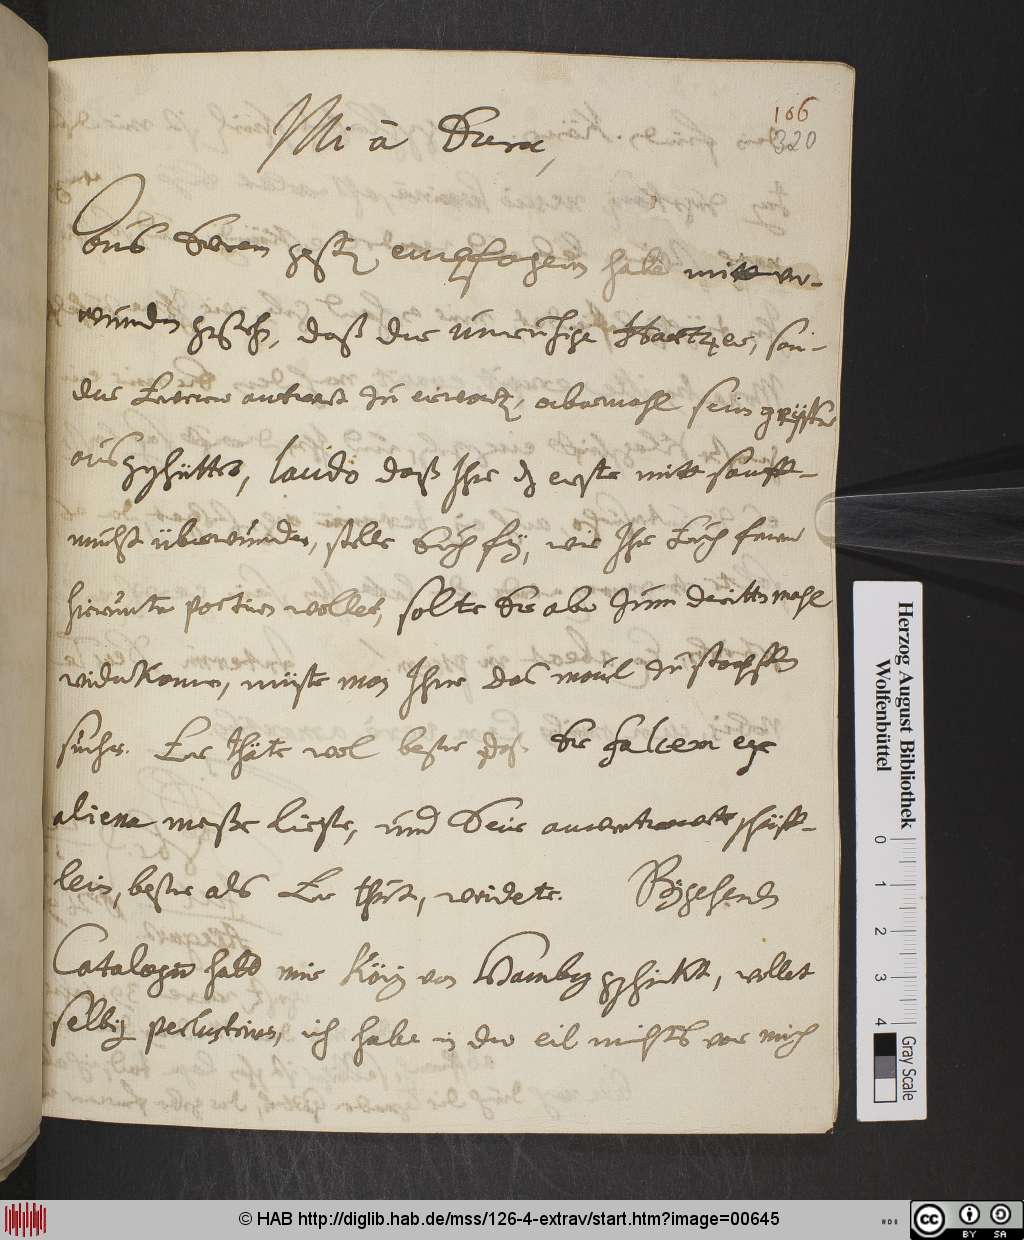 106
320
Mi â Dura,
Aus Deren gestr empfangenen habe mitt ver-
wundern gesehen, daß der unruhige Haertzer, son-
der Ewerer antwort zu erwarten, abermahl sein
ausgeschüttet, laudo daß Ihr dz erste mitt sanfft-
muht überwunden, stelle Euch frey, wie Ihr Euch ferner
hierunter portiren wollet, solte Er aber zum dritten mahl
widerkomen, müste man Ihme das maul zu stopffen
suchen. Er thäte wol besser daß Er falcem
aliena messe ließe, und Seine anvertrawete schäff-
lein, besser als Er thut, weidete. Beygehenden
Catalogum hatt mir König von Hamburg geschickt, wollet
selbigen perlustriren, ich habe in der eil nichts vor mich
Herzog August Bibliothek
Wolfenbüttel
0 1 2 3 4
Gray Scale
© HAB http://diglib.hab.de/mss/126-4-extrav/start.htm?image=00645
cc BY SA